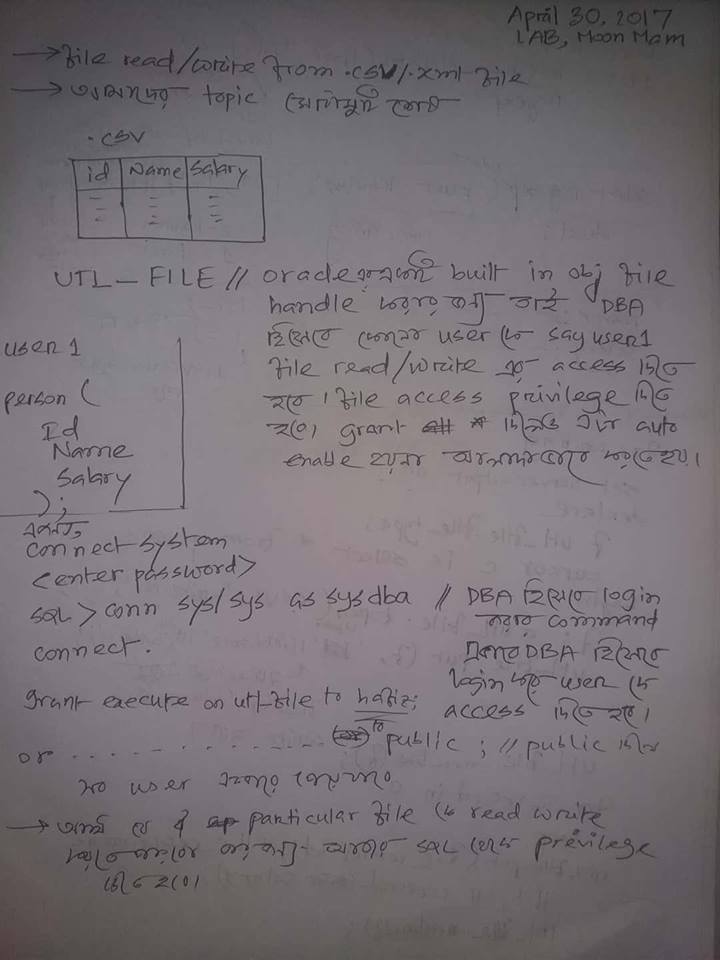 April 30, 2017
LAB, Moon Mam
→ file read/write from .csv/.xml file
→ আমাদের topic মোটামুটি শেষ
.csv
id Name Salary
UTL_FILE // oracle এর একটি built in obj file
handle করার জন্য তাই DBA
হিসেবে কোনো user কে say user1
file read/write এর access দিতে
হবে। file access privilege দিতে
হবে। grant দিলেও এটা auto
enable হয়না আলাদাভাবে করতে হয়।
user 1
person (
Id
Name
Salary
);
এখন,
connect system
<enter password>
SQL > conn sys/sys as sysdba // DBA হিসেবে login
করার command
connect.
এবার DBA হিসেবে
login করে user কে
access দিতে হবে।
grant execute on utl_file to hafiz;
or .............. to public ; // public দিলে
সব user access পেয়ে যাবে
→ আমি যে particular file কে read write
করতে তার জন্য আবার SQL থেকে previlege
দিতে হবে।